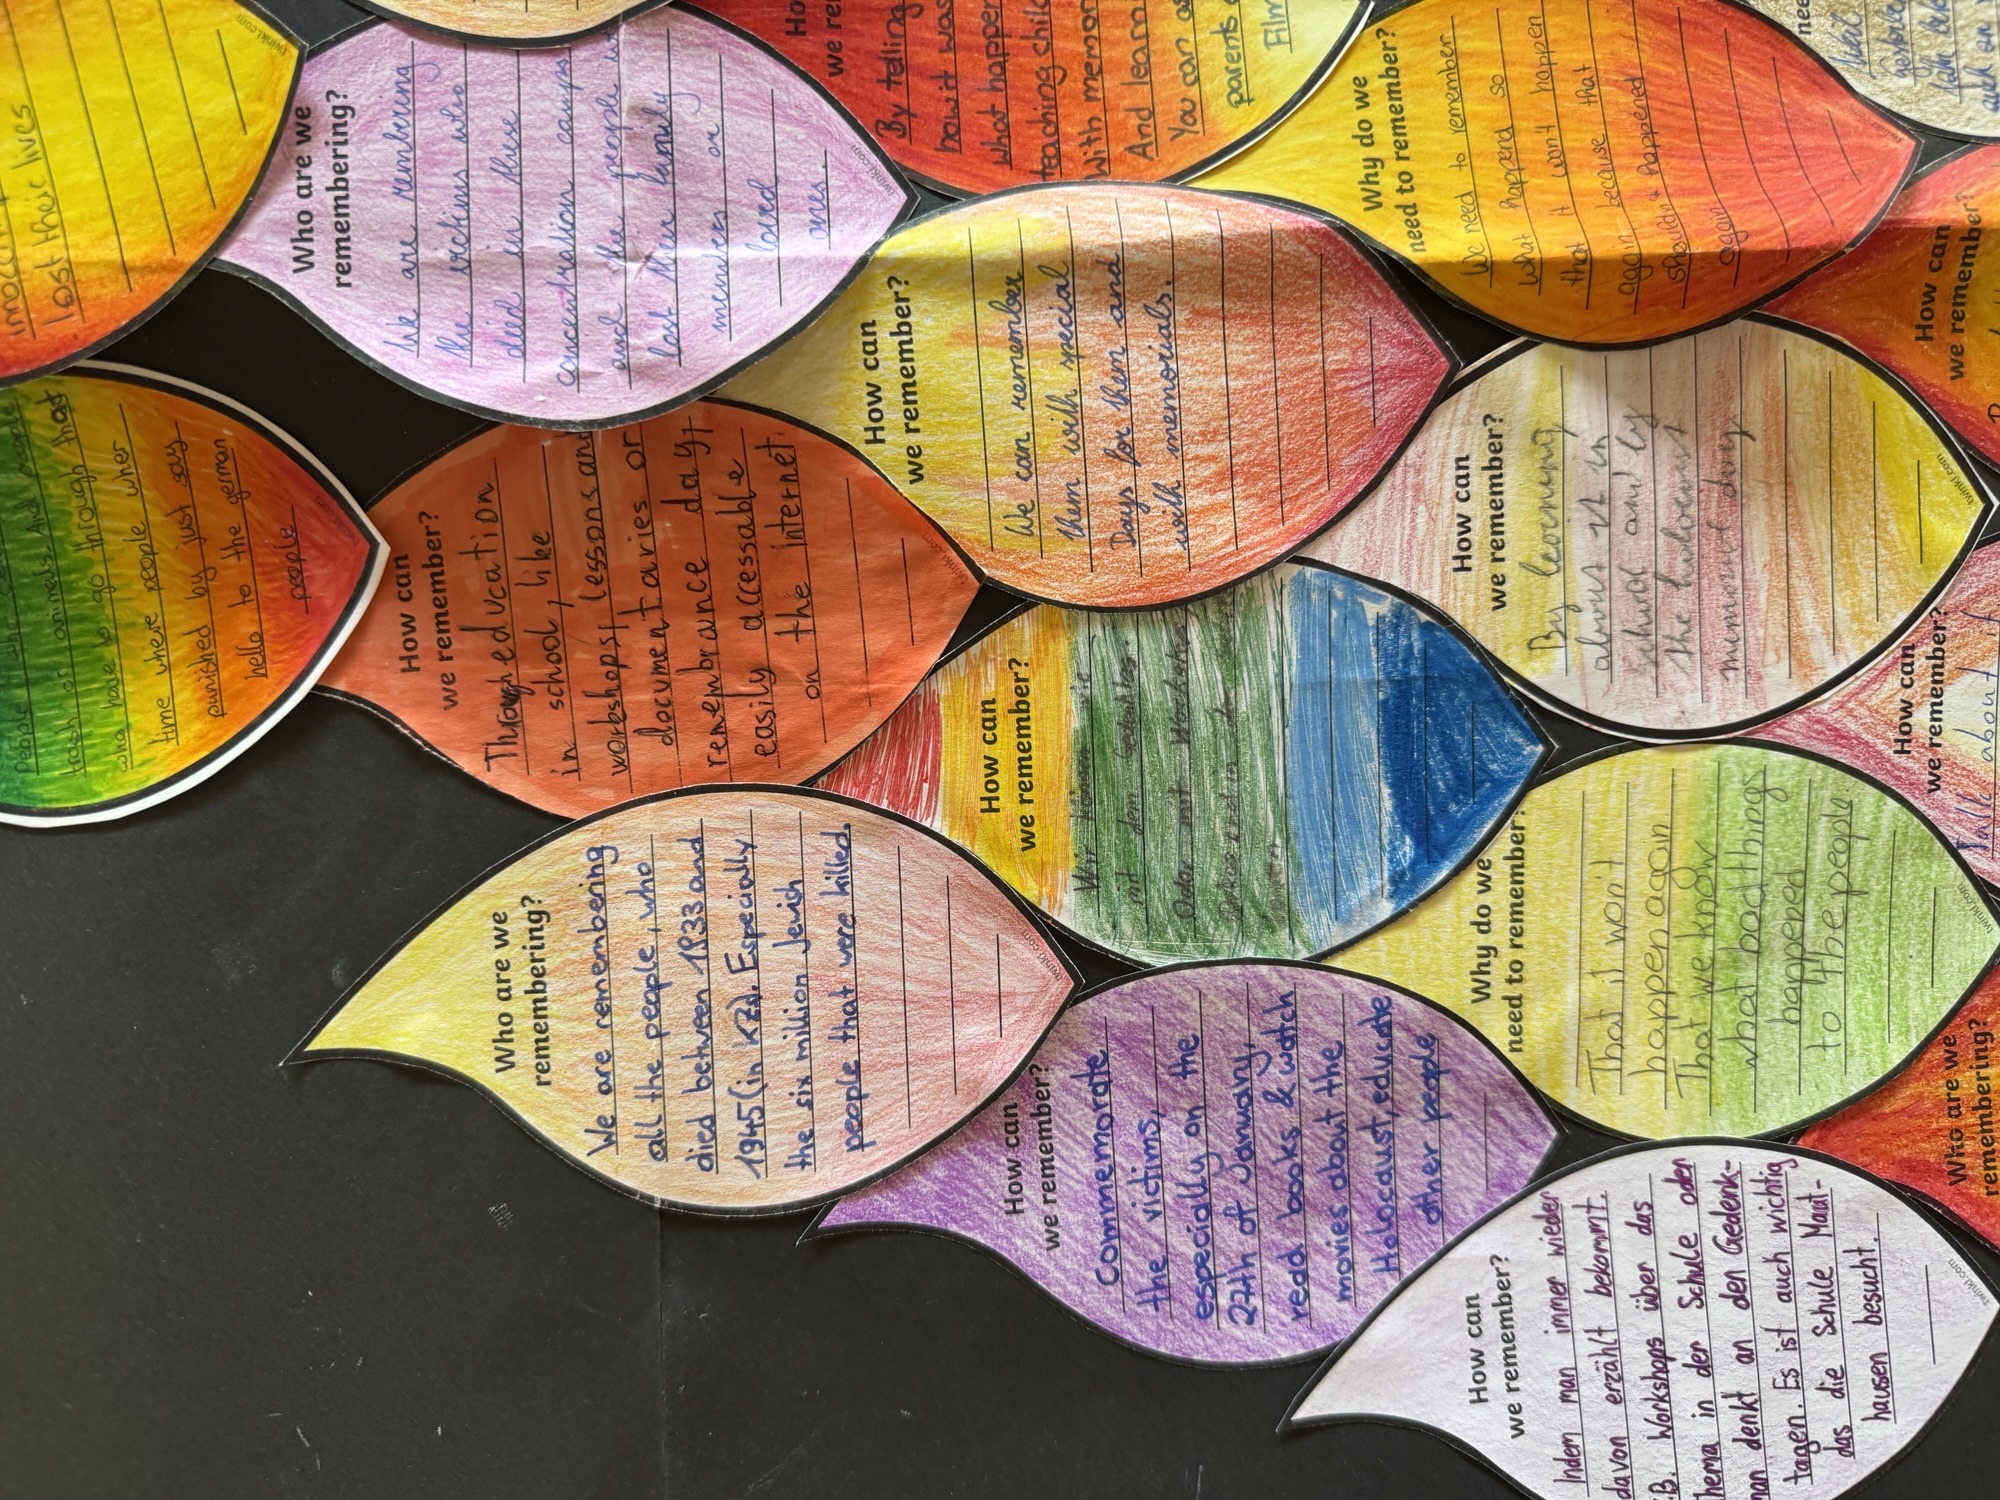 lost their lives
twinkl.com
Who are we
remembering?
We are rembering
the victims who
died in these
concentration camps
and the people
lost their family
members or
loved
ones
twinkl.com
we
By telling
how it was
what happen
teaching child
With memor
And learn
You can
parents
Film
Why do we
need to remember?
We need to remember
what happend so
that it won't happen
again because that
shouldn't happened
again
How can
we remember?
We can remember
them with special
Days for them and
with memorials.
trash or animals. And people
who have to go through that
time where people wher
punished by just say
hello to the german
people
How can
we remember?
Through education
in school, like
workshops, lessons and
documentaries or
remembrance day,
easily accessable
on the internet.
twinkl.com
How can
we remember?
By learning
about it in
school and by
the holocaust
memorial day
twinkl.com
How can
we remember?
How can
we remember?
Wir können
mit den
Oder mit
How can
we remember?
Talk about it
Who are we
remembering?
We are remembering
all the people, who
died between 1933 and
1945 (in KZs). Especially
the six million Jewish
people that were killed.
twinkl.com
Why do we
need to remember?
That it won't
happen again
That we know
what bad things
happened
to the people.
twinkl.com
How can
we remember?
Commemorate
the victims,
especially on the
27th of January,
read books & watch
movies about the
Holocaust, educate
other people
Who are we
remembering?
How can
we remember?
Indem man immer wieder
davon erzählt bekommt.
z.B. Workshops über das
Thema in der Schule oder
man denkt an den Gedenk-
tagen. Es ist auch wichtig
das die Schule Maut-
hausen besucht.
twinkl.com